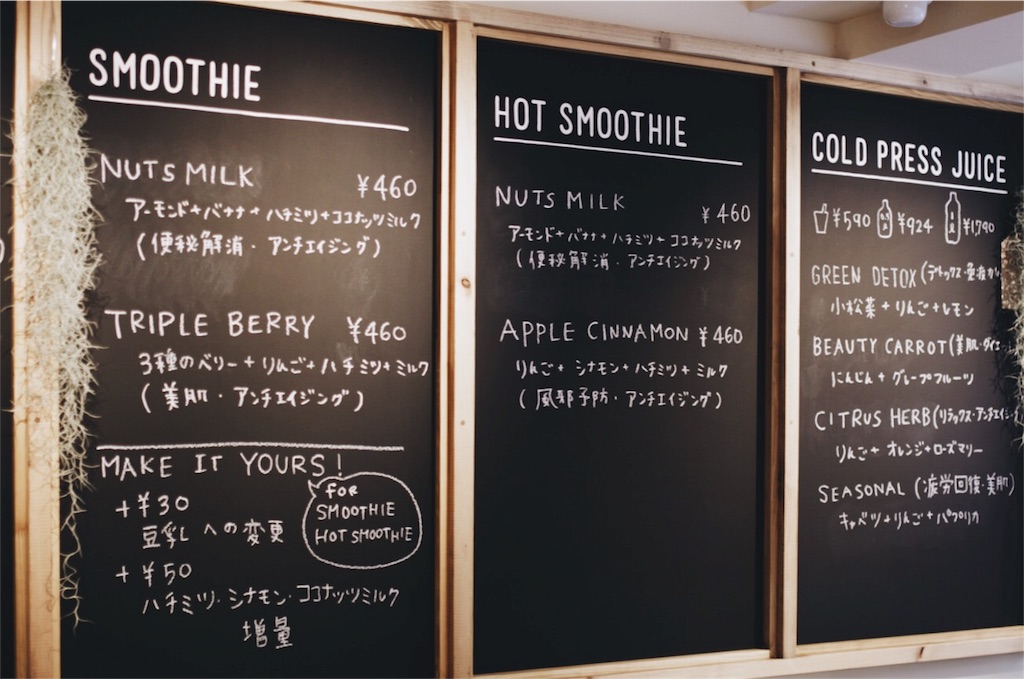 SMOOTHIE
NUTS MILK ¥460
アーモンド+バナナ+ハチミツ+ココナッツミルク
(便秘解消・アンチエイジング)
TRIPLE BERRY ¥460
3種のベリー+りんご+ハチミツ+ミルク
(美肌・アンチエイジング)
MAKE IT YOURS!
FOR
SMOOTHIE
HOT SMOOTHIE
+¥30
豆乳への変更
+¥50
ハチミツ・シナモン・ココナッツミルク
増量
HOT SMOOTHIE
NUTS MILK ¥460
アーモンド+バナナ+ハチミツ+ココナッツミルク
(便秘解消・アンチエイジング)
APPLE CINNAMON ¥460
りんご+シナモン+ハチミツ+ミルク
(風邪予防・アンチエイジング)
COLD PRESS JUICE
¥590 ¥924 ¥1,790
GREEN DETOX (デトックス・
小松菜+りんご+レモン
BEAUTY CARROT (美肌・ダイエ
にんじん+グレープフルーツ
CITRUS HERB (リラックス・アンチエイジ
りんご+オレンジ+ローズマリー
SEASONAL (疲労回復・美肌)
キャベツ+りんご+パプリカ